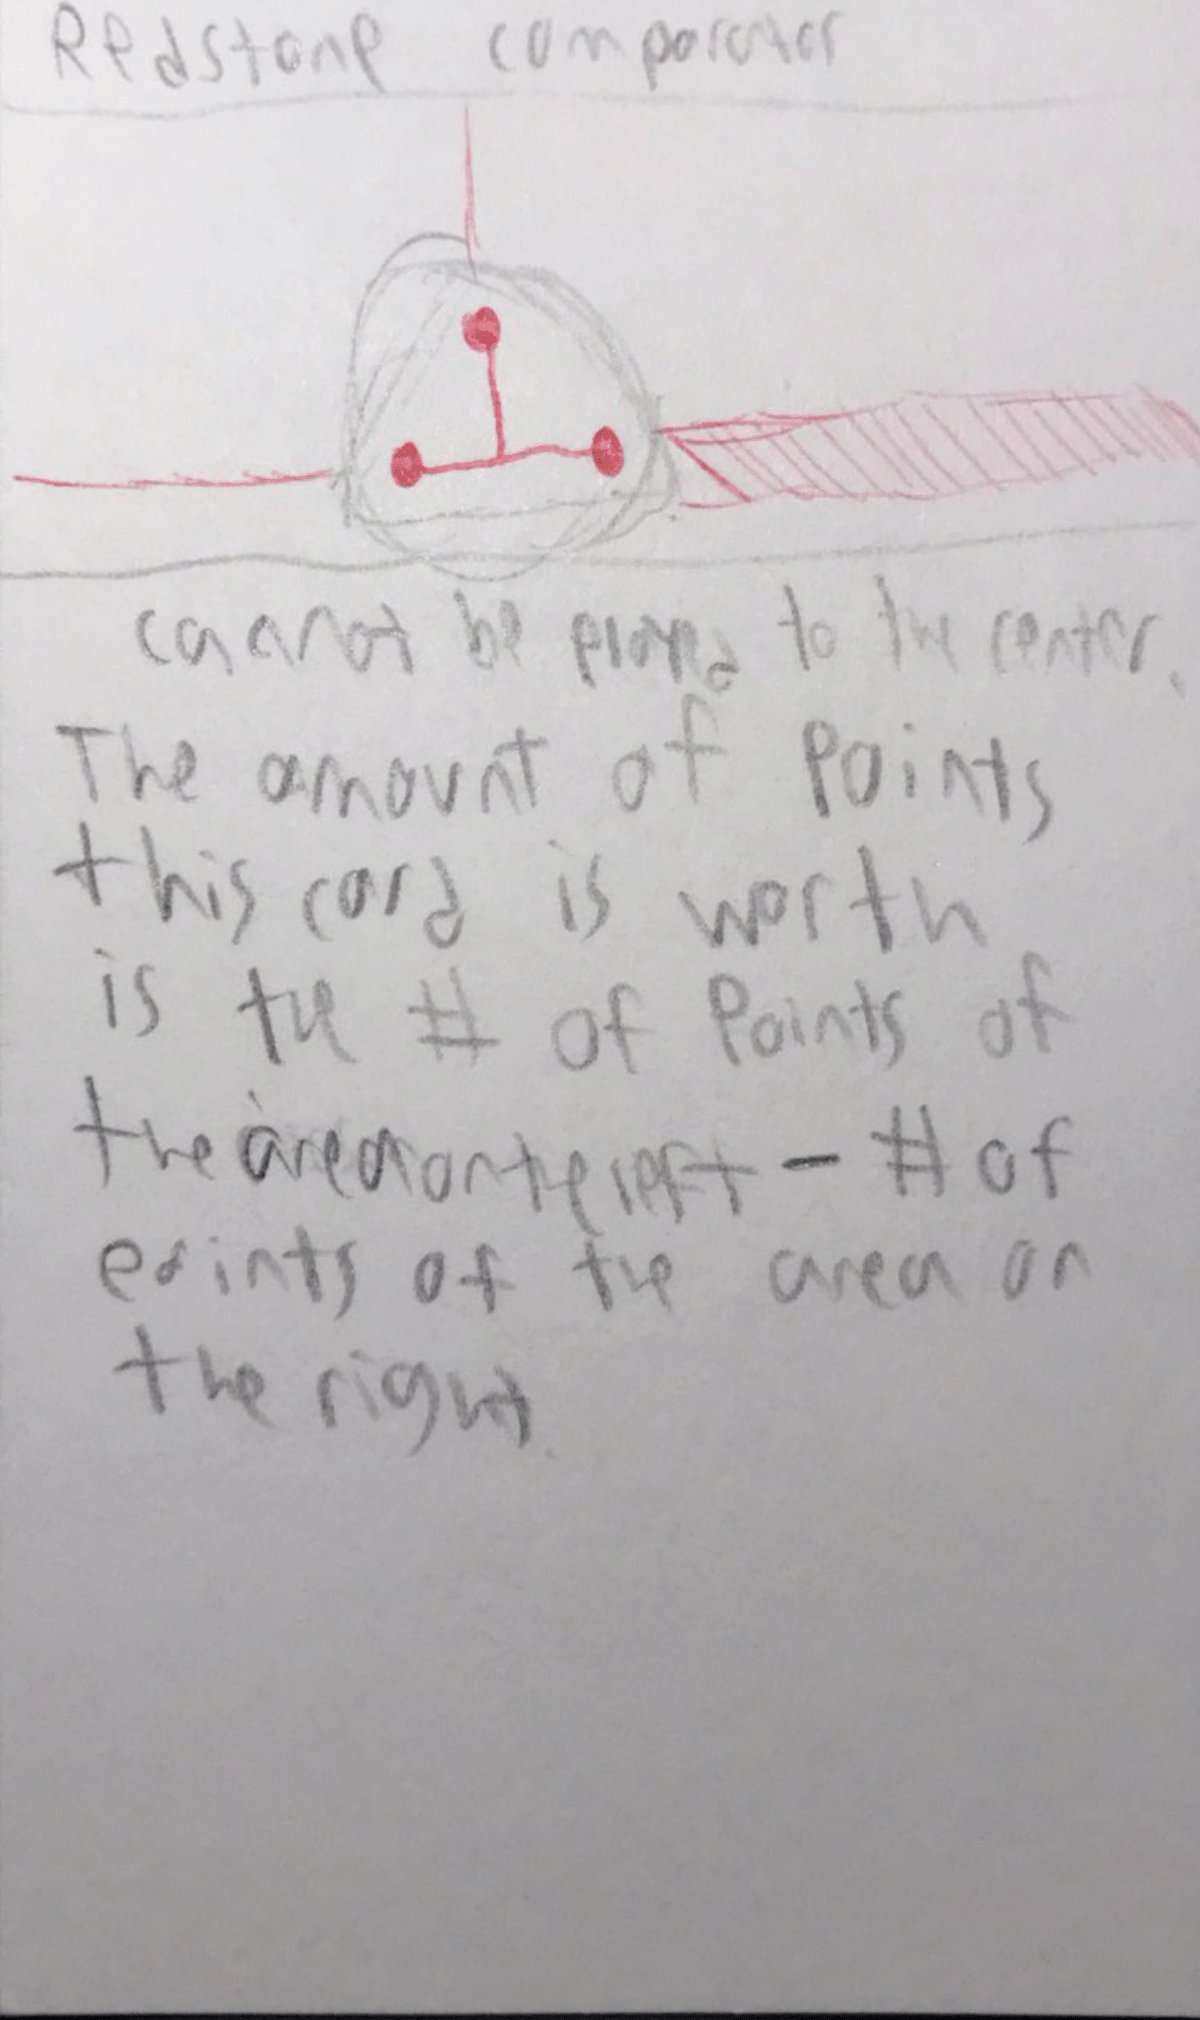 Redstone comparator
cannot be played to the center.
The amount of Points
this card is worth
is the # of Points of
the area on the left - # of
points of the area on
the right.